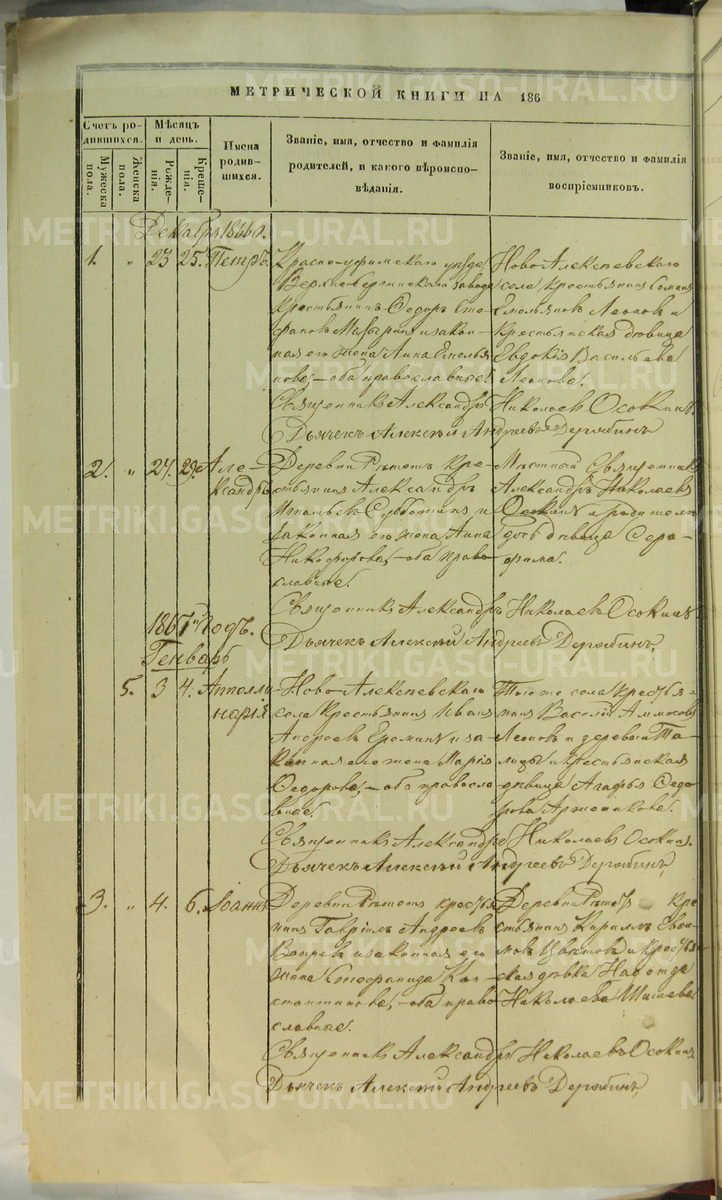 МЕТРИЧЕСКОЙ КНИГИ НА 186
Счетъ родившихся.
Мужеска пола.
Женска пола.
Мѣсяцъ и день.
Рожденія.
Крещенія.
Имена родившихся.
Званіе, имя, отчество и фамилія родителей, и какого вѣроисповѣданія.
Званіе, имя, отчество и фамилія воспріемниковъ.
Декабря 1866 г.
1. „ 23 25. Петръ.
Красноуфимскаго уѣзда
Верхне-Сергинскаго завода
крестьянинъ Ѳедоръ Сте-
фановъ и закон-
ная его жена Анна Емелья
нова, – оба православные.
Ново Алексѣевскаго
села крестьянинъ
Емельяновъ Леоновъ и
крестьянская дѣвица
Евдокія Васильева
Леонова.
Священникъ Александръ Николаевъ Осокинъ.
Дьячекъ Алексѣй Андреевъ Дерябинъ
2. „ 27. 29. Але-
ксандръ
Деревни Рѣшетъ кре-
стьянинъ Александръ
Игнатьевъ Субботинъ и
законная его жена Анна
Никифорова, – оба право-
славные.
Мѣстный Священникъ
Александръ Николаевъ
Осокинъ и
дочь дѣвица Сера-
фима.
Священникъ Александръ Николаевъ Осокинъ
Дьячекъ Алексѣй Андреевъ Дерябинъ,
1867 Годъ.
Генварь
5. 3 4. Апполли
нарія
Ново-Алексѣевскаго
села крестьянинъ Иванъ
Андреевъ Ереминъ и за-
конная его жена Марія
Ѳедорова, – оба правосла-
вные.
Того же села крестья-
нинъ Василій Аммосовъ
Леоновъ и деревни Та-
лицы крестьянская
дѣвица Агафья Ѳедо-
рова Артемикова.
Священникъ Александръ Николаевъ Осокинъ.
Дьячекъ Алексѣй Андреевъ Дерябинъ,
3. „ 4. 6. Іоаннъ
Деревни Рѣшетъ кресть
нинъ Гавріилъ Андреевъ
и законная его
жена Стефанида Кон-
стантинова, – оба право
славные.
Деревни Рѣшетъ кре
стьянинъ Кириллъ
Цвѣтковъ и кресть
ская дѣвка
Николаева Шишева.
Священникъ Александръ Николаевъ Осокинъ,
Дьячекъ Алексѣй Андреевъ Дерябинъ,
METRIKI.GASO-URAL.RU